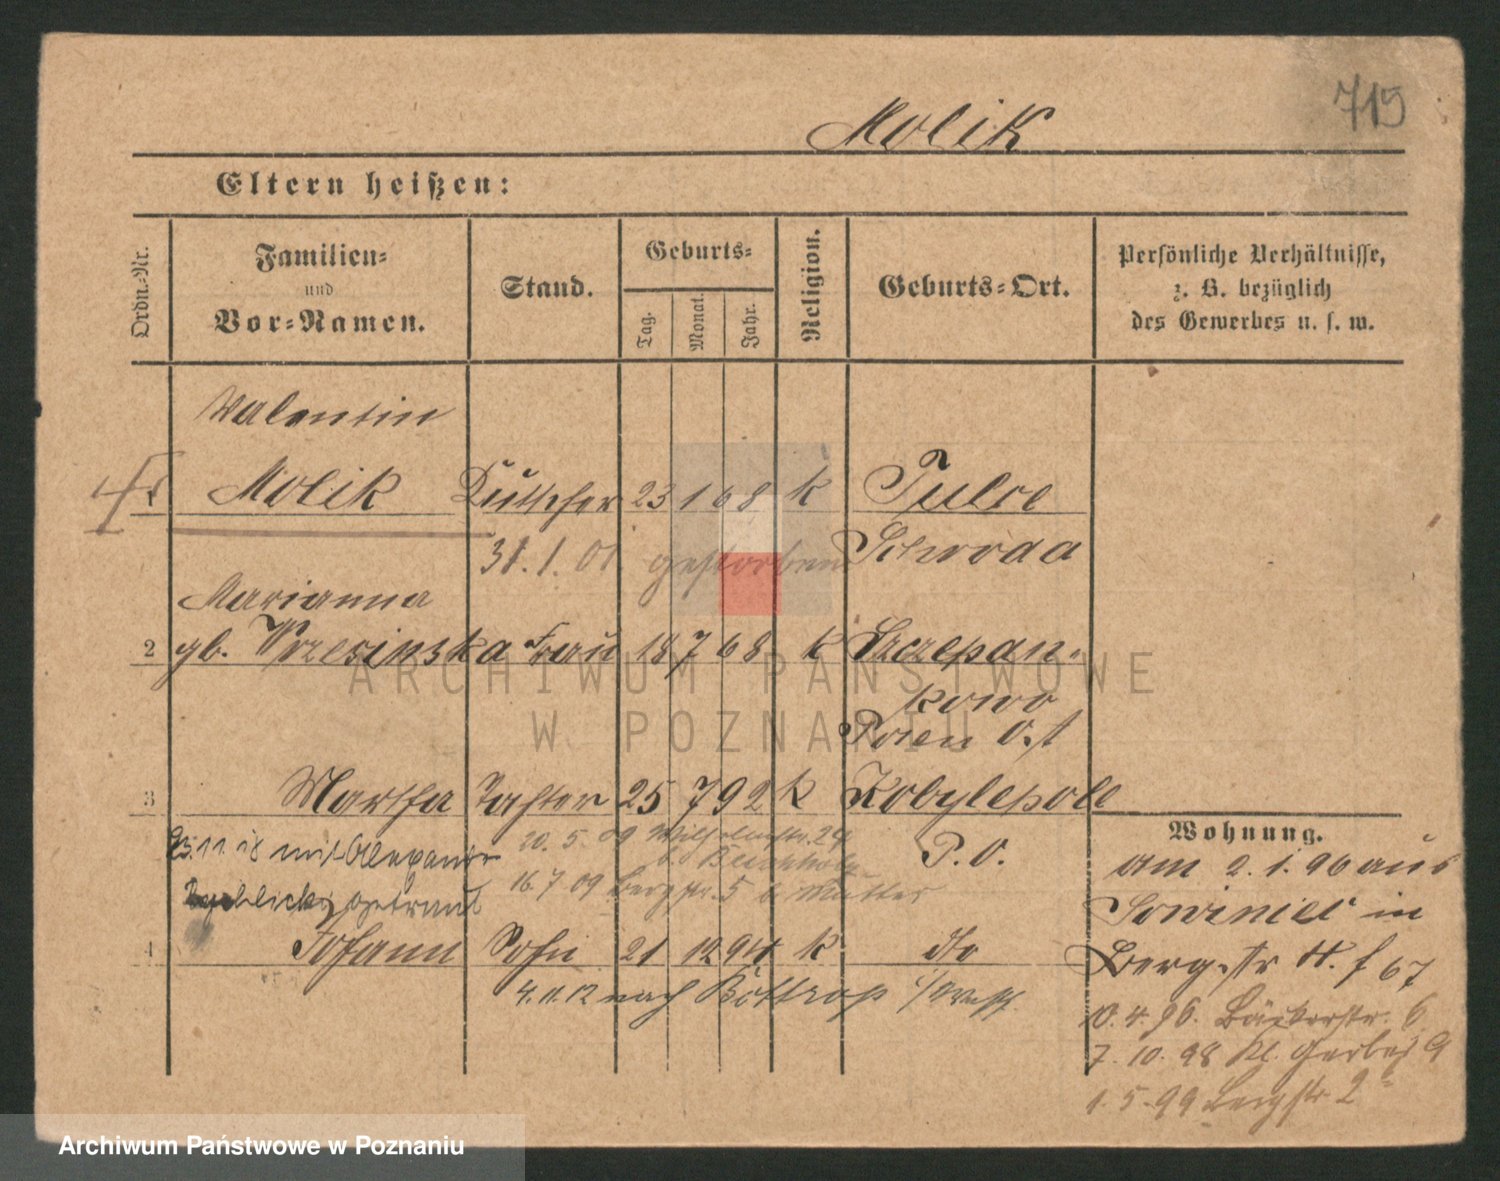 719
Molik
Eltern heißen:
Ordn.-Nr.
Familien-
und
Vor-Namen.
Stand.
Geburts-
Tag.
Monat.
Jahr.
Religion.
Geburts-Ort.
Persönliche Verhältnisse,
z. B. bezüglich
des Gewerbes u. s. w.
Valentin
Molik Kutscher 23 1 68 k Pulce
31.1.01. gestorben Schroda
Marianna
2 gb. Wrzesinska Frau 18 7 68 k Szczepan-
kowo
Posen Ost
3 Martha Tochter 25 7 92 k Kobylepole
Wohnung.
20.5.09 Wilhelmstr. 24
P.O.
am 2.1.96 aus
23.11.18 mit Alexander
b. Buchholz
16.7.09 Bergstr. 5 b Mutter
getraut
Sowiniec in
4 Johann Sohn 21 12 94 k do
Bergstr 4. f 67
4.11.12 nach Bottrop i/Westf.
10.4.96. Bäckerstr. 6
7.10.98 Kl. Gerberst 9
1.5.99 Bergstr. 2
ARCHIWUM PAŃSTWOWE
W POZNANIU
Archiwum Państwowe w Poznaniu